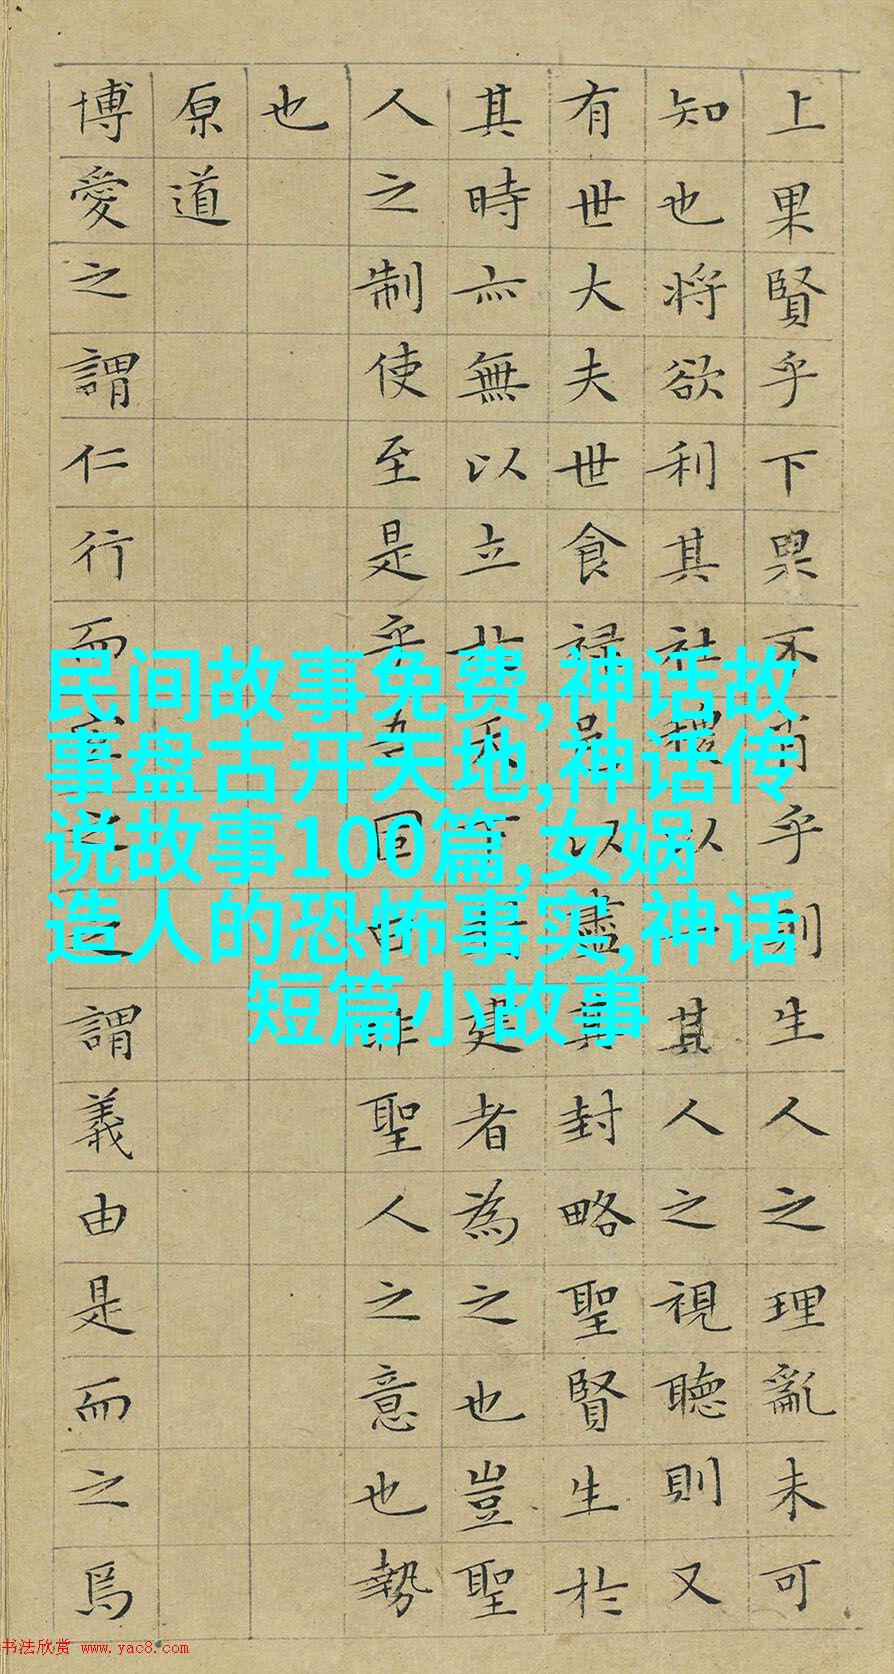 上果賢乎下果不肖乎則生人之理亂未可
知也將欲利其社稷以一其人之視聽則又
有世大夫世食禄邑以盡其封略聖賢生於
其時亦無以立於天下封建者為之也豈聖
人之制使至是乎吾固曰非聖人之意也勢
也
原道
博愛之謂仁行而宜之之謂義由是而之焉
民间故事免费,神话故
事盘古开天地,神话传
说故事100篇,女娲
造人的恐怖事实,神话
短篇小故事
书法欣赏 www.yac8.com